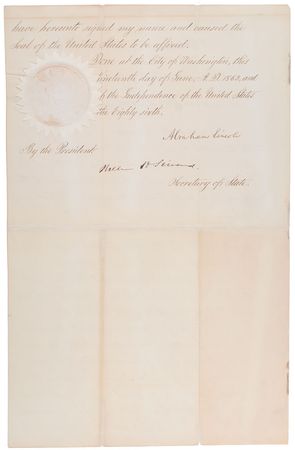 have hereunto signed my name and caused the
Seal of the United States to be affixed.
Done at the City of Washington, this
nineteenth day of June, A.D. 1862, and
of the Independence of the United States
the Eighty sixth.
Abraham Lincoln
By the President
William H Seward.
Secretary of State.